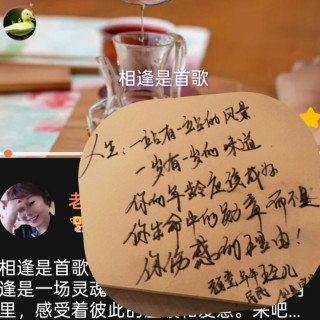 相逢是首歌
人生,一站有一站的风景
一岁有一岁的味道
你的年龄应该成为
你生命中的勋章而不是
你伤感的理由!
老
相逢是首歌
逢是一场灵魂
里，感受着彼此的
来吧...